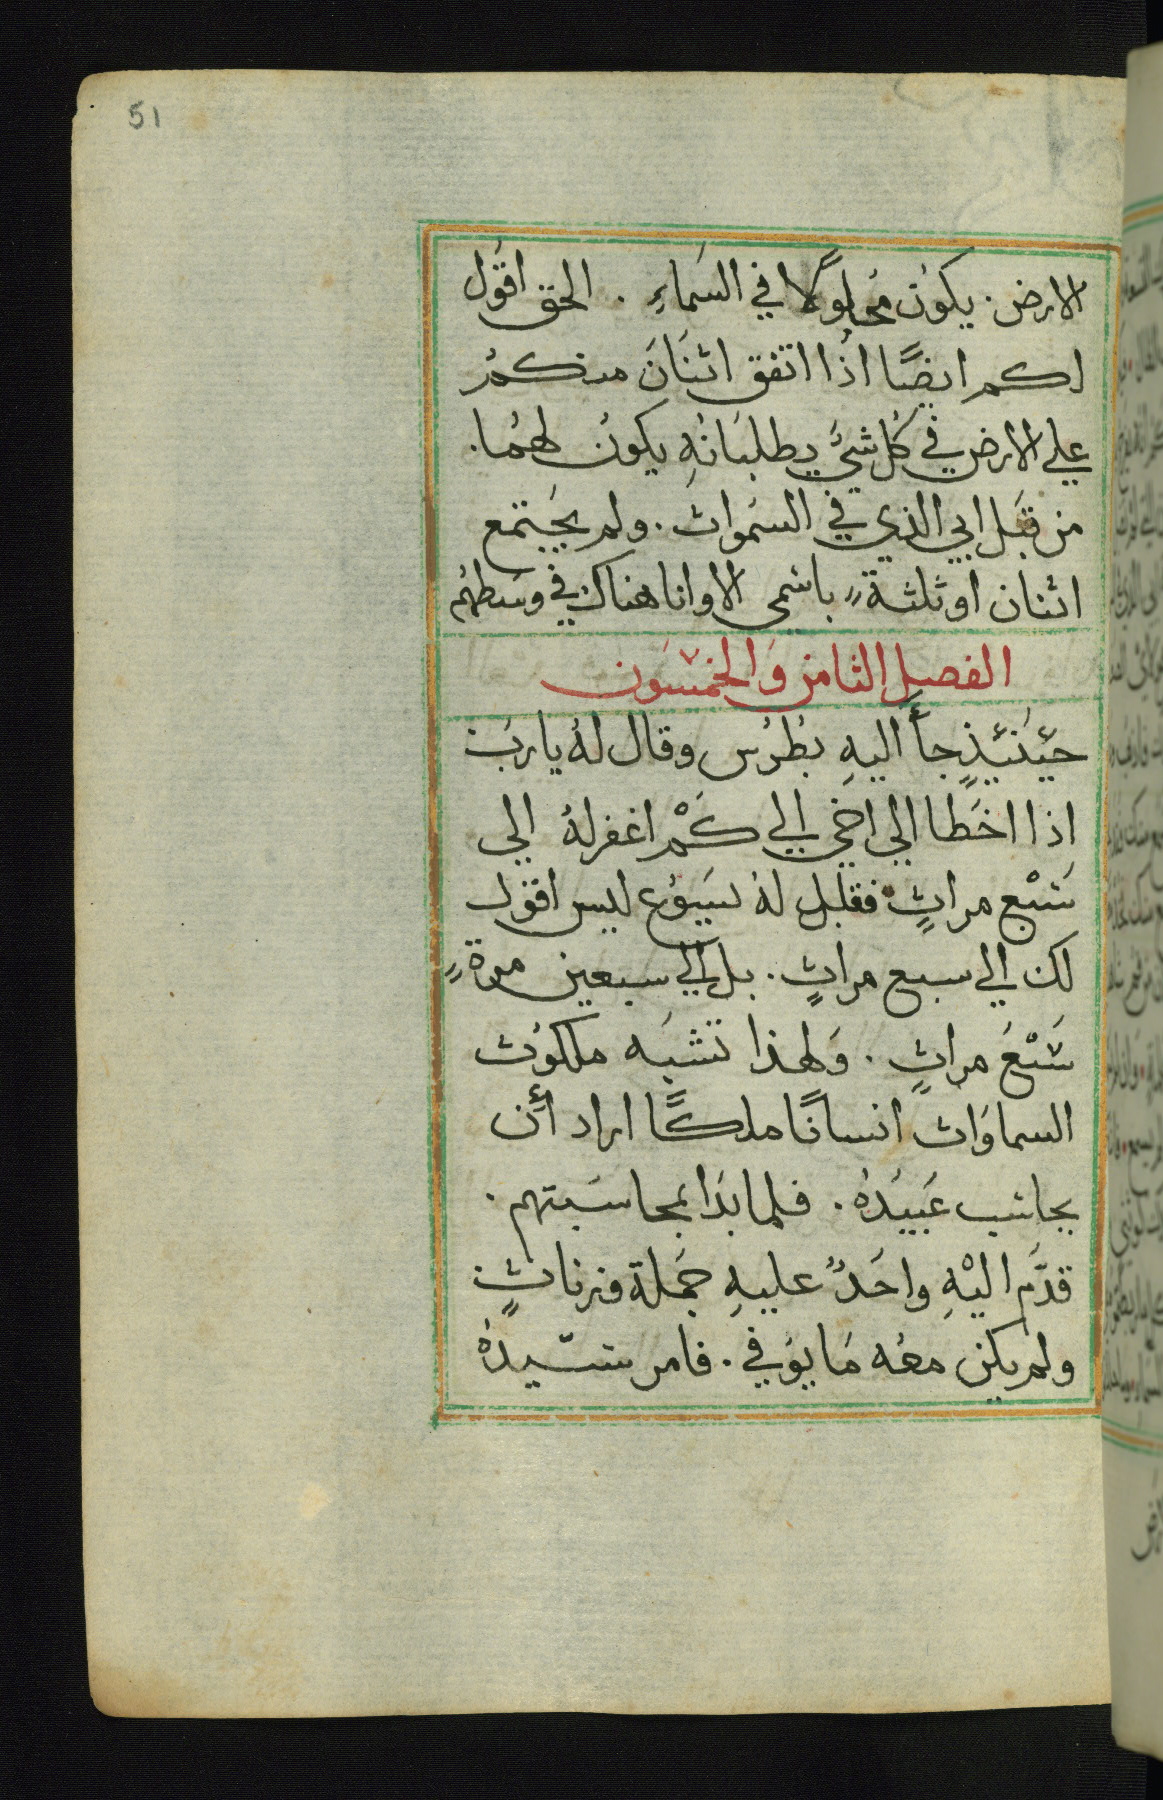 51
الارض. يكون محلولًا في السَماءِ . الحق اقول
لكم ايضًا اذا اتفق اثنَانَ منكم
علي الارض في كُل شيءٍ يطلبَانهِ يكون لهمُا.
من قبَل ابي الذي في السَموات. ولم يجَتمع
اثنان او ثلثةٍ باسمي الا وانا هناك في وسَطهُم
الفصل الثامن وَالخمسَون
حيَنئيذٍ جأَ اليهِ بُطرُس وقال لهُ يارب
اذا اخَطا الي اخي الي كَمْ اغفر لهُ الي
سَبْع مراتٍ فقال لهُ يسَوُع ليس اقول
لك الي سبع مراتٍ. بل الي سبعين مرةٍ
سَبْعَ مراتٍ . وَلهذا تشبَه ملكوُت
السماوَات انسانًا ملكًا اراد أَن
يحاسب عَبيَدهُ. فلما بدَا بمحاسَبتهم.
قدَّم اليْهِ واحَدٌ عليهِ جمَلة وزناتٍ
ولم يكن معُه مَا يوُفي. فامر سَيدهُ